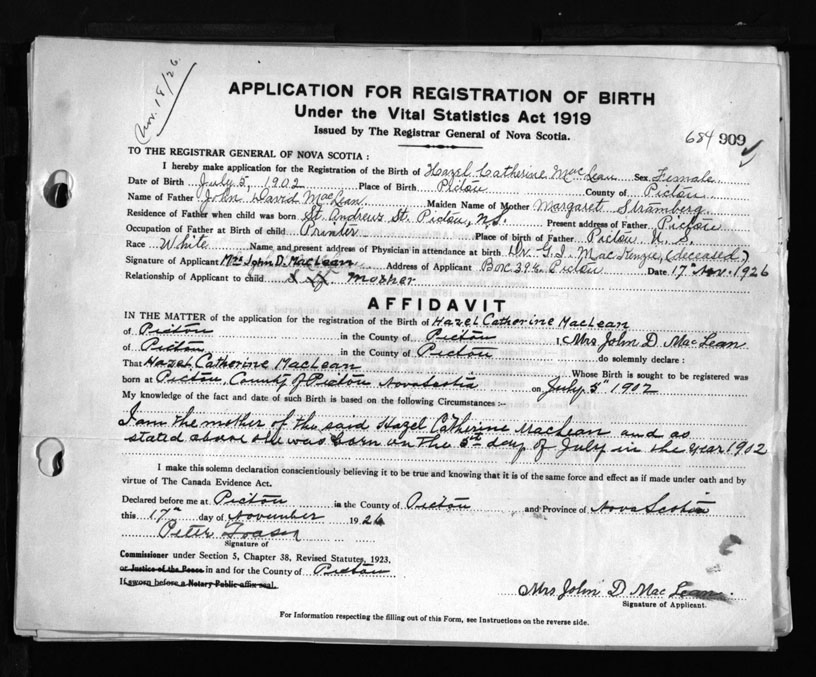 Nov. 18/26
APPLICATION FOR REGISTRATION OF BIRTH
Under the Vital Statistics Act 1919
Issued by The Registrar General of Nova Scotia.
684 909
TO THE REGISTRAR GENERAL OF NOVA SCOTIA :
I hereby make application for the Registration of the Birth of Hazel Catherine MacLean Sex Female
Date of Birth July 5, 1902 Place of Birth Pictou County of Pictou
Name of Father John David MacLean Maiden Name of Mother Margaret Stramberg
Residence of Father when child was born St. Andrews St. Pictou, N.S. Present address of Father Pictou
Occupation of Father at Birth of child Printer Place of birth of Father Pictou N. S.
Race White Name and present address of Physician in attendance at birth Dr. G. I. MacKenzie, (deceased.)
Signature of Applicant Mrs John D. MacLean Address of Applicant Box 394 Pictou Date 17th Nov. 1926
Relationship of Applicant to child Mother
AFFIDAVIT
IN THE MATTER of the application for the registration of the Birth of Hazel Catherine MacLean
of Pictou in the County of Pictou I, Mrs John D. MacLean
of Pictou in the County of Pictou do solemnly declare :
That Hazel Catherine MacLean Whose Birth is sought to be registered was
born at Pictou, County of Pictou Nova Scotia on July 5th 1902
My knowledge of the fact and date of such Birth is based on the following Circumstances :-
I am the mother of the said Hazel Catherine MacLean and as
stated above she was born on the 5th day of July in the year 1902
I make this solemn declaration conscientiously believing it to be true and knowing that it is of the same force and effect as if made under oath and by
virtue of The Canada Evidence Act.
Declared before me at Pictou in the County of Pictou and Province of Nova Scotia
this 17th day of November 1926
Peter Fraser
Signature of
Commissioner under Section 5, Chapter 38, Revised Statutes, 1923,
or Justice of the Peace in and for the County of Pictou
If sworn before a Notary Public affix seal.
Mrs John D MacLean.
Signature of Applicant.
For Information respecting the filling out of this Form, see Instructions on the reverse side.